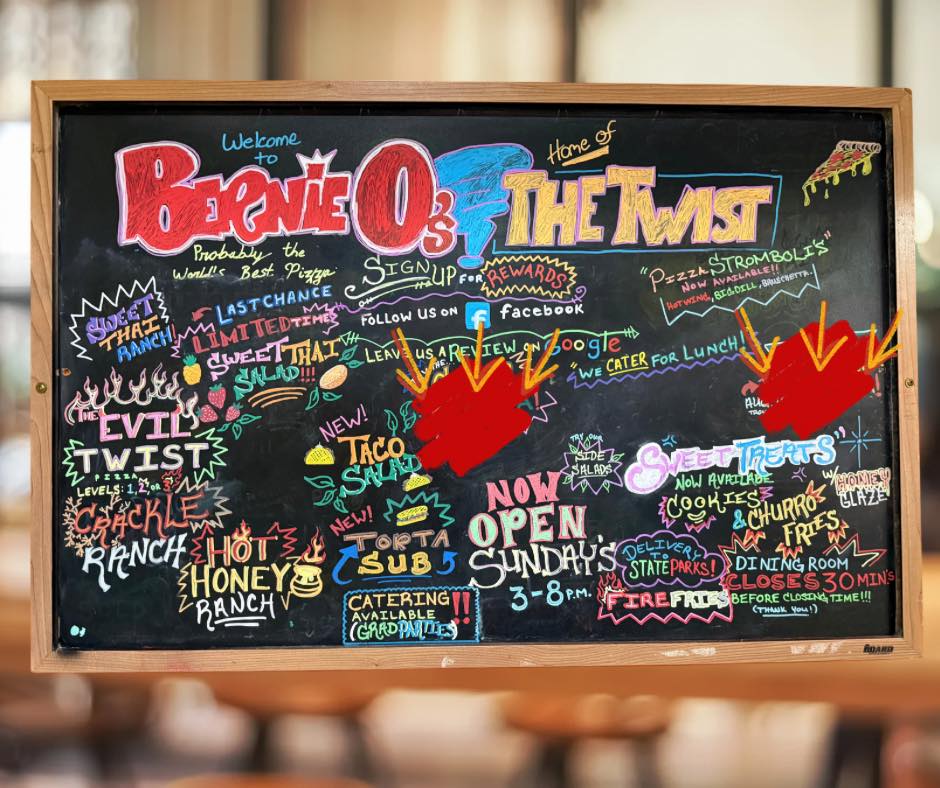 Welcome
to
BERNIE O's
Probably the
World's Best Pizza
Home of
THE TWIST
SIGN UP FOR REWARDS
FOLLOW US ON f facebook
LEAVE US A REVIEW ON Google
"WE CATER FOR LUNCH!
"PIZZA STROMBOLI'S"
NOW AVAILABLE!!
HOTWING, BIG DILL, BRUSCHETTA.
SWEET
THAI
RANCH
LAST CHANCE
LIMITED TIME
SWEET THAI
SALAD!!!
THE
EVIL
TWIST
PIZZA
LEVELS: 1, 2, OR 3
CRACKLE
RANCH
HOT
HONEY
RANCH
NEW!
TACO
SALAD
NEW!
TORTA
SUB
CATERING
AVAILABLE
(GRAD PARTIES)!!
NOW
OPEN
SUNDAY'S
3-8 P.M.
TRY OUR
SIDE
SALADS
SWEET TREATS"
NOW AVAILABE
COOKIES
& CHURRO
FRIES
W/ HONEY
GLAZE
DELIVERY
TO
STATE PARKS!
FIRE FRIES
DINING ROOM
CLOSES 30 MIN'S
BEFORE CLOSING TIME!!!
(THANK YOU!)
BOARD